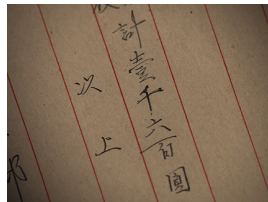 計壹千六百圓
次上